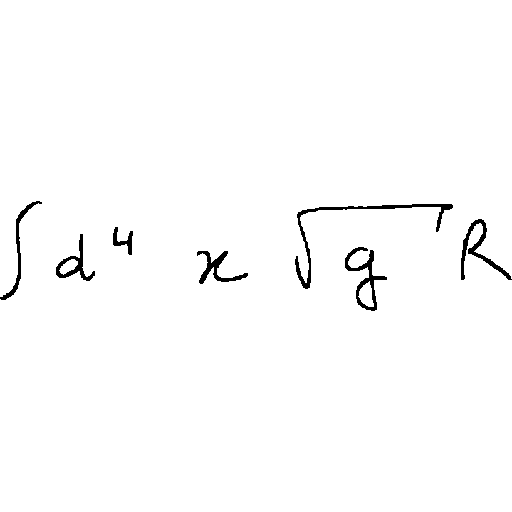 ∫d⁴ x √g R